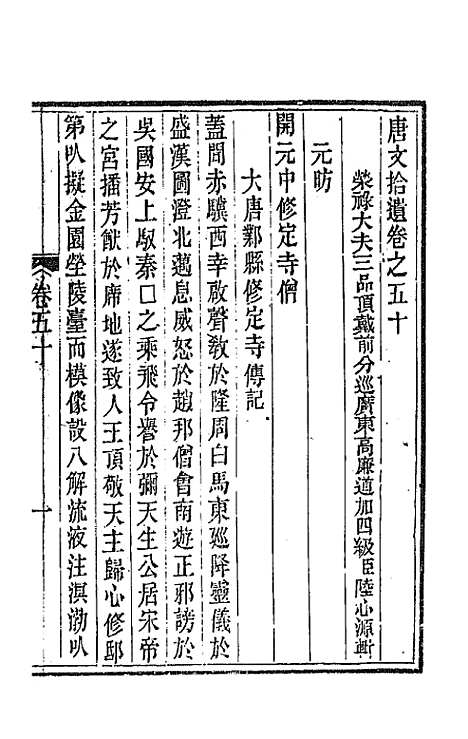 唐文拾遺卷之五十
榮祿大夫三品頂戴前分巡廣東高廉道加四級臣陸心源輯
元昉
開元中修定寺僧
大唐鄴縣修定寺傳記
蓋聞赤驥西幸啟聲敎於隆周白馬東巡降靈儀於
盛漢圖澄北邁息威怒於趙邦僧會南遊正邪謗於
吳國安上馭秦口之乘飛令譽於彌天生公居宋帝
之宮播芳猷於席地遂致人王頂敬天主歸心修邸
第㕥擬金園瑩陵臺而模像設八解流液注溟渤㕥
卷五十
一